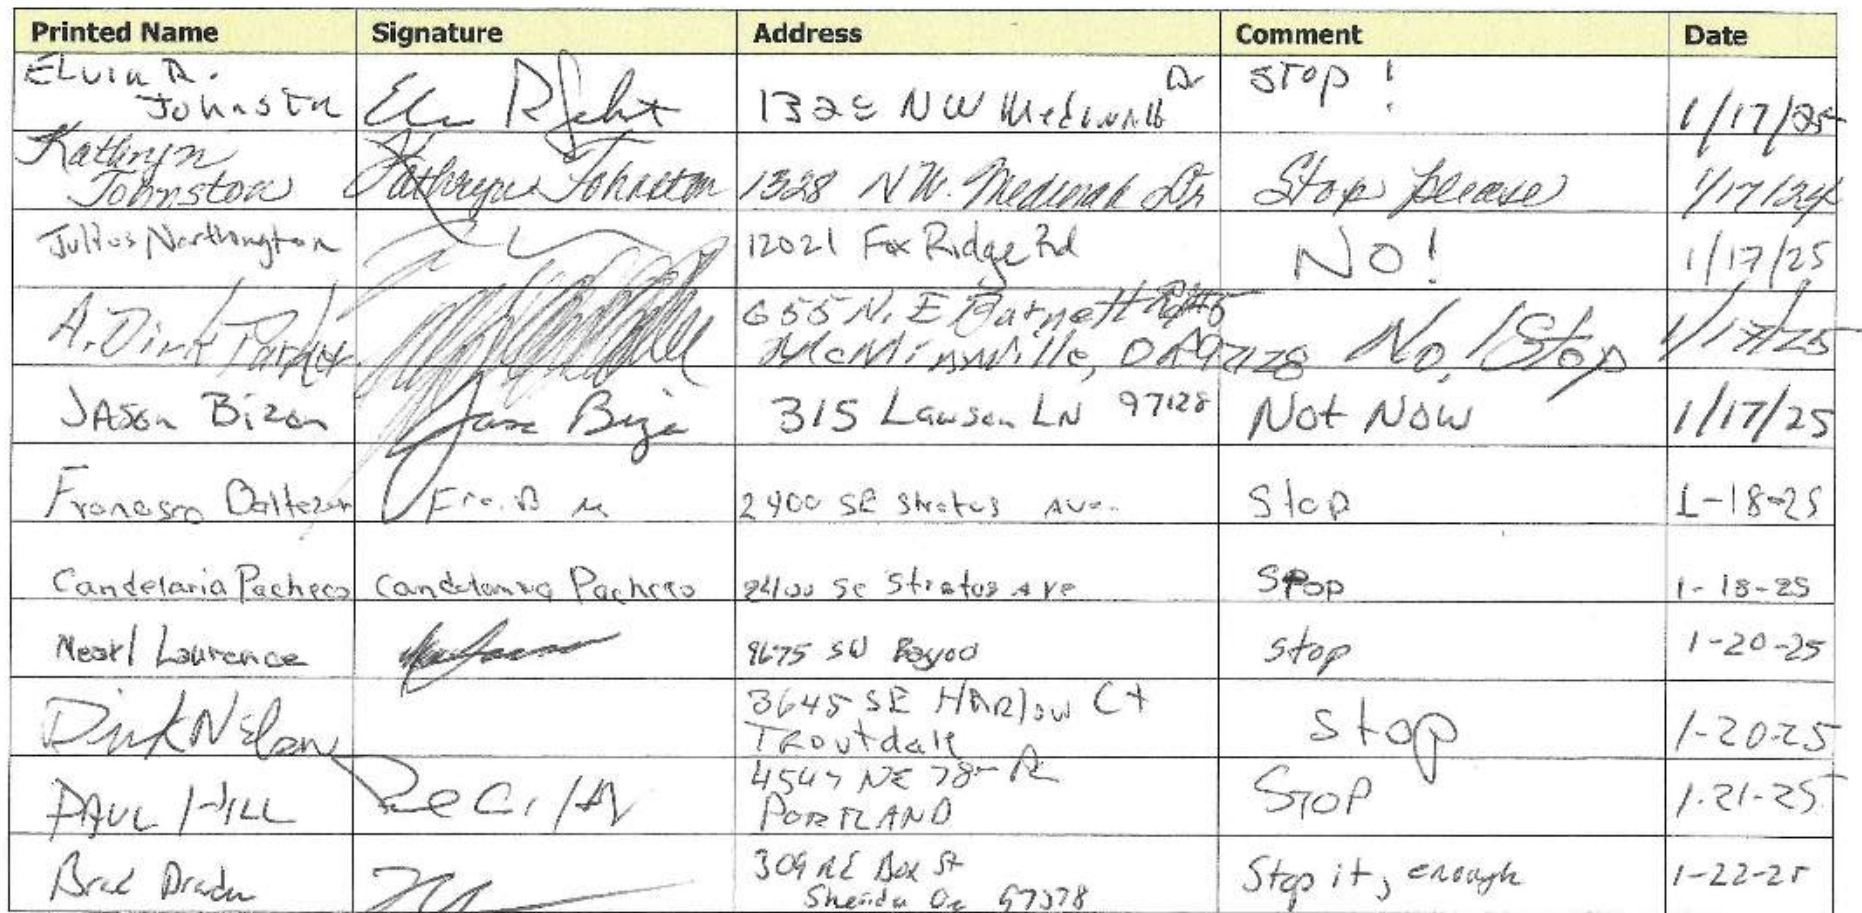 Printed Name Signature Address Comment Date
Elvin R. Johnston 1328 NW Medinah Dr STOP! 1/17/25
Kathryn Johnston Kathryn Johnston 1328 NW. Medinah Dr Stop please 1/17/24
Julius Northington 12021 Fox Ridge Rd NO! 1/17/25
A. Dirk Parker 655 N.E Barnett Rd #5
McMinnville, OR 97128 No, Stop 1/17/25
JASon Bizon 315 Lawson LN 97128 Not Now 1/17/25
2400 SE Stratus Ave. Stop 1-18-25
Candelaria Pacheco Candelaria Pacheco 2400 SE Stratus Ave Stop 1-18-25
Laurence 9675 SW stop 1-20-25
Dirk Nelson 3645 SE HARlow Ct
Troutdale stop 1-20-25
PAUL HILL 4547 NE 78th
PORTLAND STOP 1-21-25
Brad 309 NE St
Or 97378 Stop it, enough 1-22-25